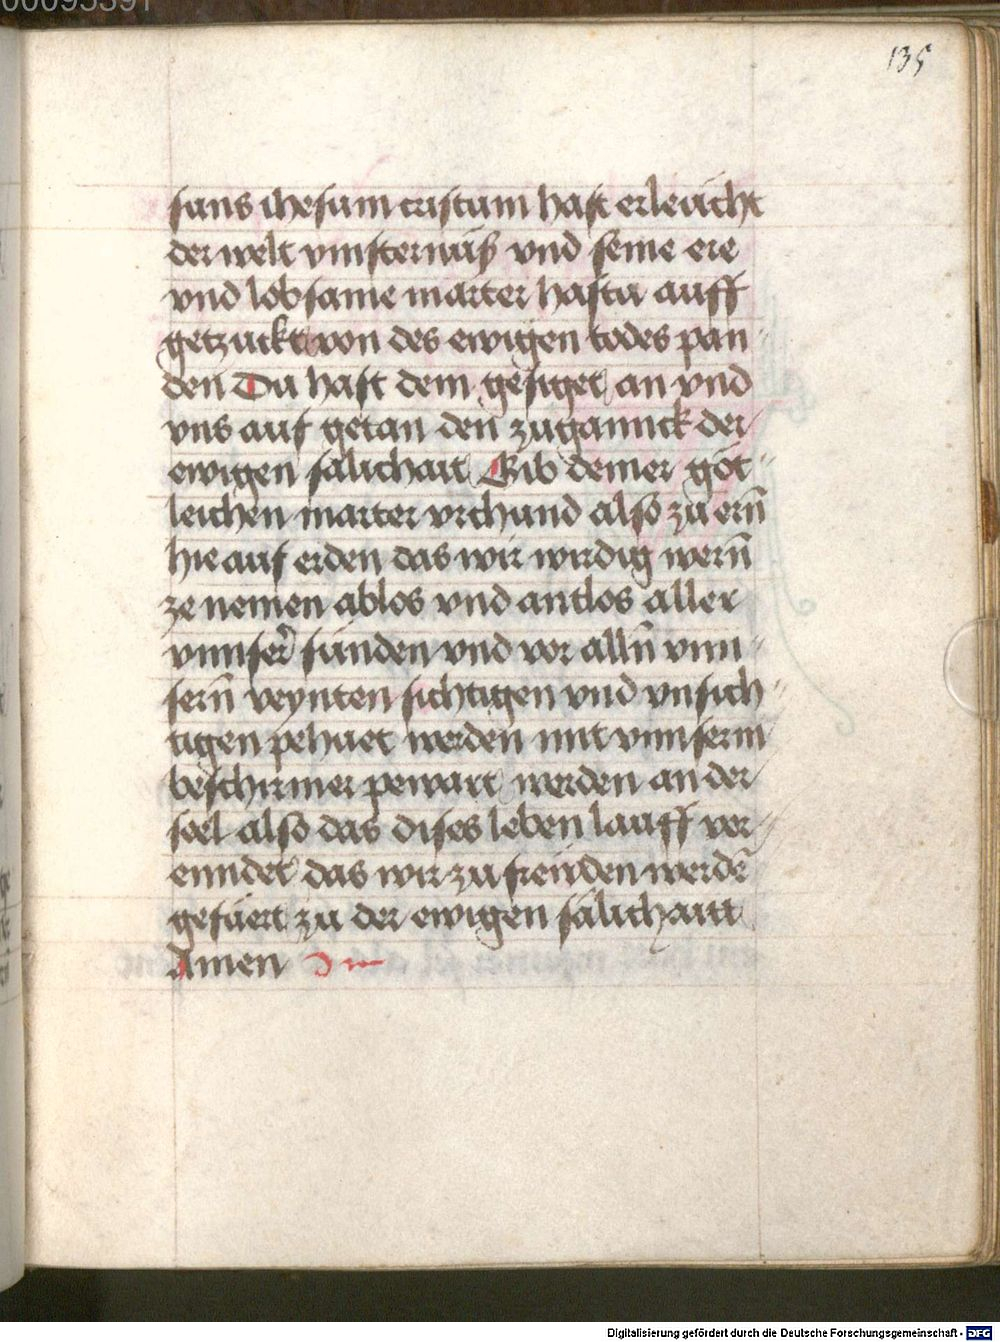 00095391
135
suns ihesum cristum hast erleücht
der welt vinsternüß vnd seine ere
vnd lobsame marter hastu auff
getzuckt von des ewigen todes pan
den Du hast dem gesiget an vnd
vns auf getan den zugannck der
ewigen sälichait Gib deiner göt
leichen marter vrchund also zu ern̄
hie auf erden das wir wirdig wern̄
ze nemen ablos vnd antlos aller
vnnser̄ sünden vnd vor alln̄ vnn
sern̄ veynten sichtigen vnd vnsich
tigen pehuet werden mit vnnserm
beschirmer pewart werden an der
sel also das dises leben lauff ver
enndet das wir zu freẅden werdē
gefüert zu der ewigen sälichaitt
Amen
Digitalisierung gefördert durch die Deutsche Forschungsgemeinschaft - DFG